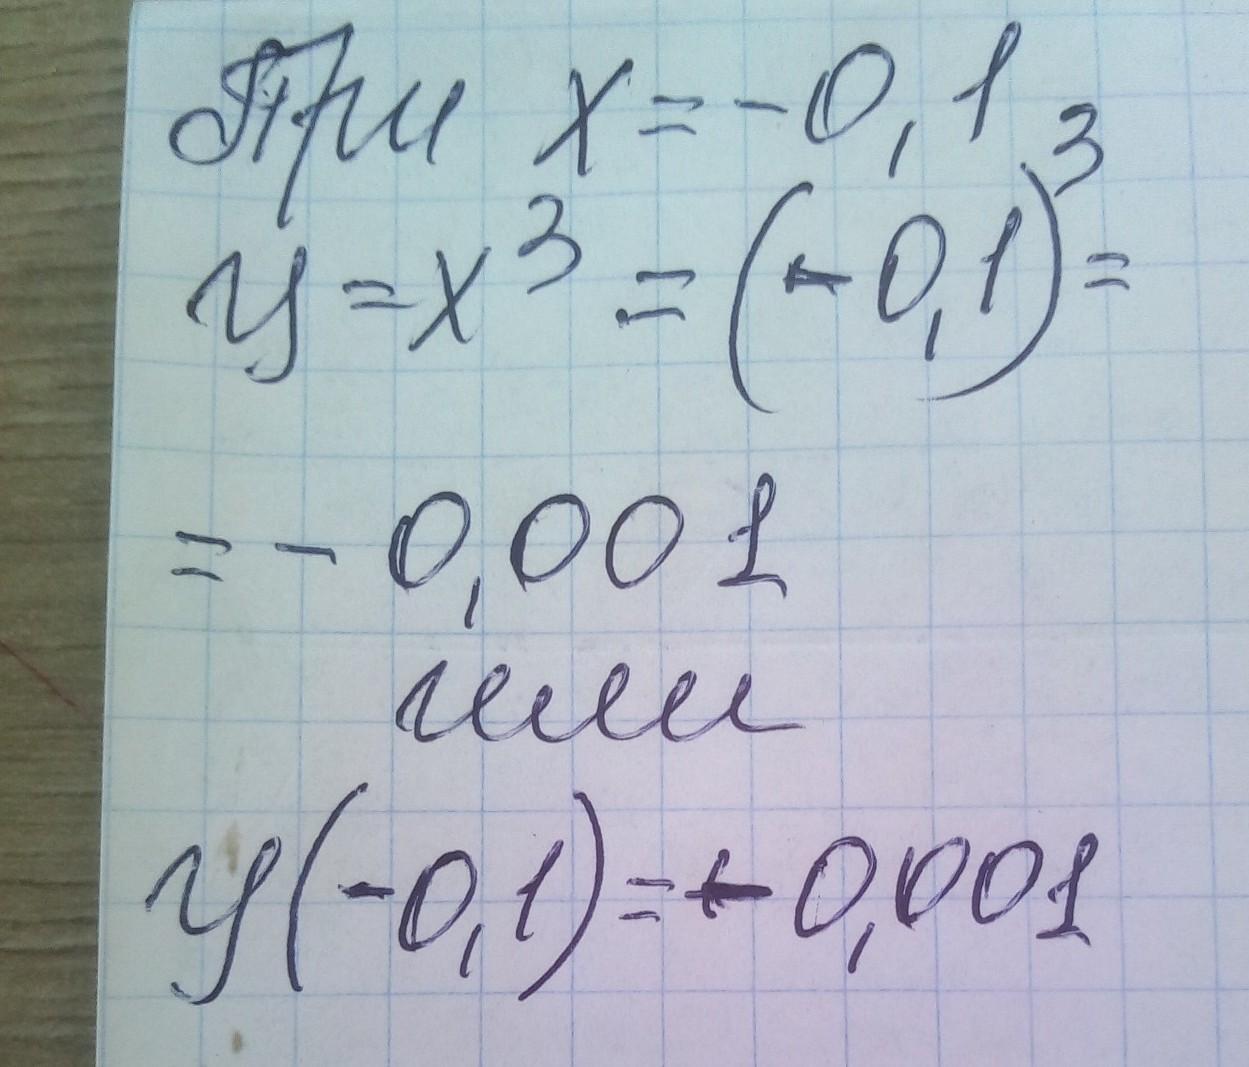 При x = -0,1
y = x³ = (-0,1)³ =
= - 0,001
или
y(-0,1) = - 0,001